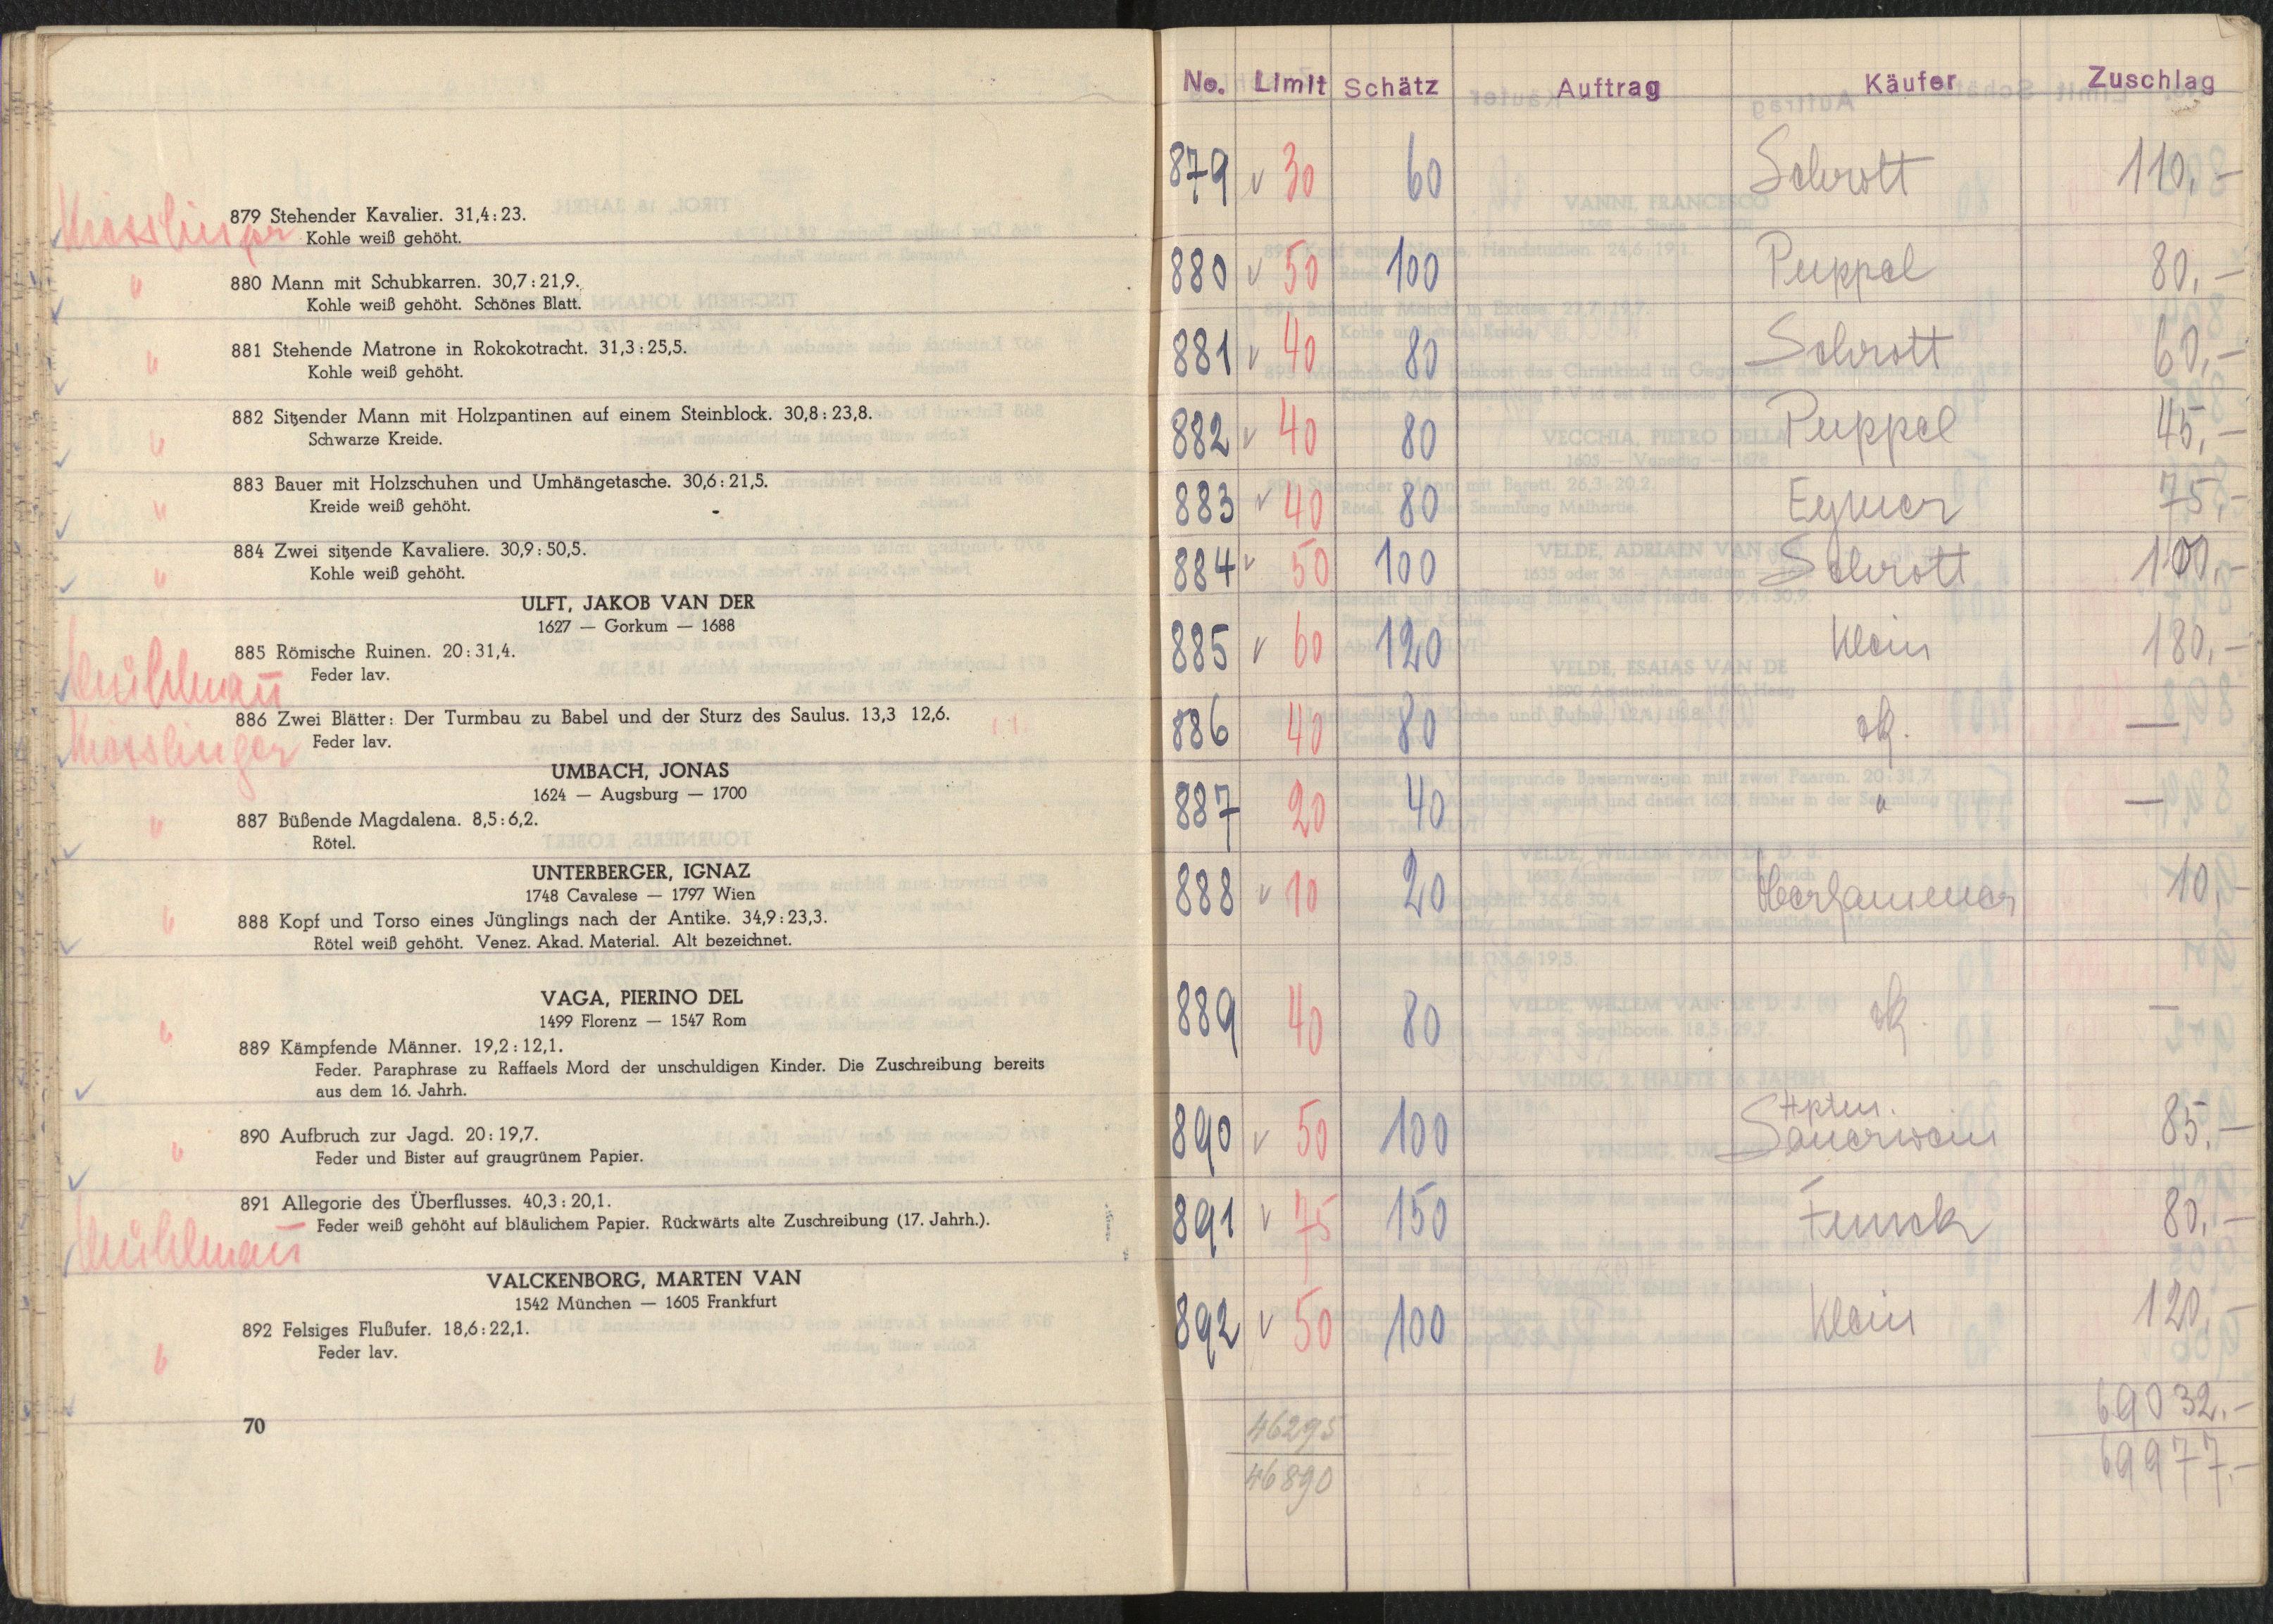 Mässlinger
879 Stehender Kavalier. 31,4:23.
Kohle weiß gehöht.
" 880 Mann mit Schubkarren. 30,7:21,9.
Kohle weiß gehöht. Schönes Blatt.
" 881 Stehende Matrone in Rokokotracht. 31,3:25,5.
Kohle weiß gehöht.
" 882 Sitzender Mann mit Holzpantinen auf einem Steinblock. 30,8:23,8.
Schwarze Kreide.
" 883 Bauer mit Holzschuhen und Umhängetasche. 30,6:21,5.
Kreide weiß gehöht.
" 884 Zwei sitzende Kavaliere. 30,9:50,5.
Kohle weiß gehöht.
ULFT, JAKOB VAN DER
1627 — Gorkum — 1688
885 Römische Ruinen. 20:31,4.
Feder lav.
Mühlmañ
886 Zwei Blätter: Der Turmbau zu Babel und der Sturz des Saulus. 13,3 12,6.
Feder lav.
Mässlinger
UMBACH, JONAS
1624 — Augsburg — 1700
" 887 Büßende Magdalena. 8,5:6,2.
Rötel.
UNTERBERGER, IGNAZ
1748 Cavalese — 1797 Wien
" 888 Kopf und Torso eines Jünglings nach der Antike. 34,9:23,3.
Rötel weiß gehöht. Venez. Akad. Material. Alt bezeichnet.
VAGA, PIERINO DEL
1499 Florenz — 1547 Rom
" 889 Kämpfende Männer. 19,2:12,1.
Feder. Paraphrase zu Raffaels Mord der unschuldigen Kinder. Die Zuschreibung bereits
aus dem 16. Jahrh.
" 890 Aufbruch zur Jagd. 20:19,7.
Feder und Bister auf graugrünem Papier.
891 Allegorie des Überflusses. 40,3:20,1.
Feder weiß gehöht auf bläulichem Papier. Rückwärts alte Zuschreibung (17. Jahrh.).
Mühlmañ
VALCKENBORG, MARTEN VAN
1542 München — 1605 Frankfurt
" 892 Felsiges Flußufer. 18,6:22,1.
Feder lav.
70
No. Limit Schätz Auftrag Käufer Zuschlag
879 v 30 60 Schrott 110,–
880 v 50 100 Puppel 80,–
881 v 40 80 Schrott 60,–
882 v 40 80 Puppel 45,–
883 v 40 80 Eymer 75,–
884 v 50 100 Schrott 100,–
885 v 60 120 Klein 180,–
886 40 80 —
887 20 40 " —
888 v 10 20 Oberhammer 10,–
889 40 80 —
890 v 50 100 Hptm. Sauerwein 85,–
891 v 75 150 Funck 80,–
892 v 50 100 Klein 120,–
46295 69032.–
46890 69977.–